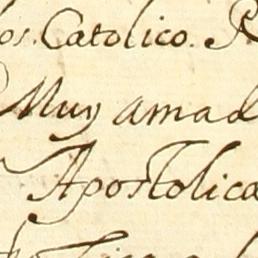 os. Catolico. R
Muy amad
Apostolica